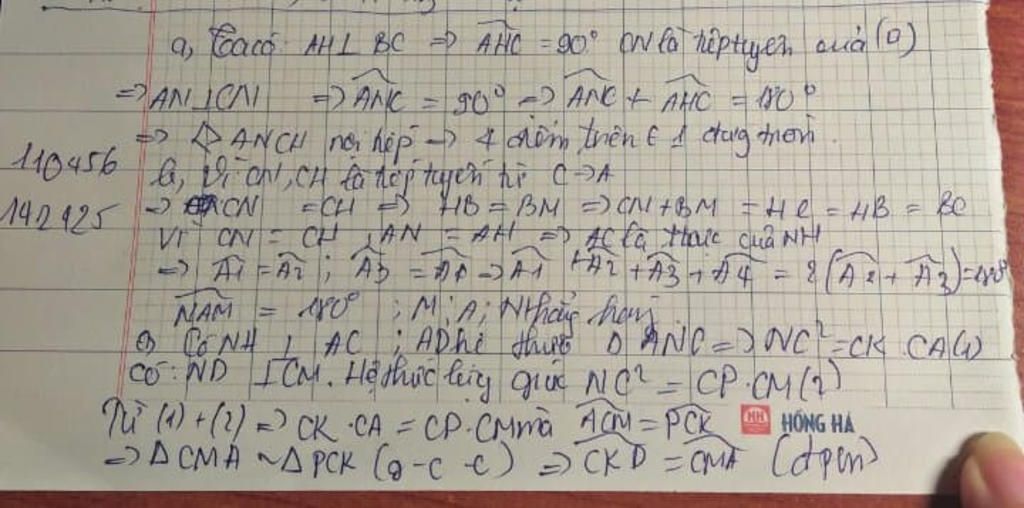 a, Ta có: AH ⊥ BC => AHC = 90° CN là tiếp tuyến của (O)
=> AN ⊥ CN => ANC = 90° => ANC + AHC = 180°
=> ANCH nội tiếp -> 4 điểm trên € 1 đường tròn.
110456
b, Vì CN, CH là tiếp tuyến từ C -> A
142125
-> CN = CH => HB = BM => CN + BM = HC = HB = BC
Vì CN = CH ; AN = AH => AC là trực của NH
=> A1 = A2 ; A3 = A1 -> A1 + A2 + A3 + A4 = 2(A2 + A3) = 180°
NAM = 180° ; M ; A ; N thẳng hàng
c) Có NH ⊥ AC ; AD hệ thức Δ ANC => NC² = CK . CA (1)
Có: ND ⊥ CM. Hệ thức lượng giác NC² = CP . CM (2)
Từ (1) + (2) => CK . CA = CP . CM mà ACM = PCK
HỒNG HÀ
=> Δ CMA ~ Δ PCK (g - c - c) => CKD = CMA (đpcm)